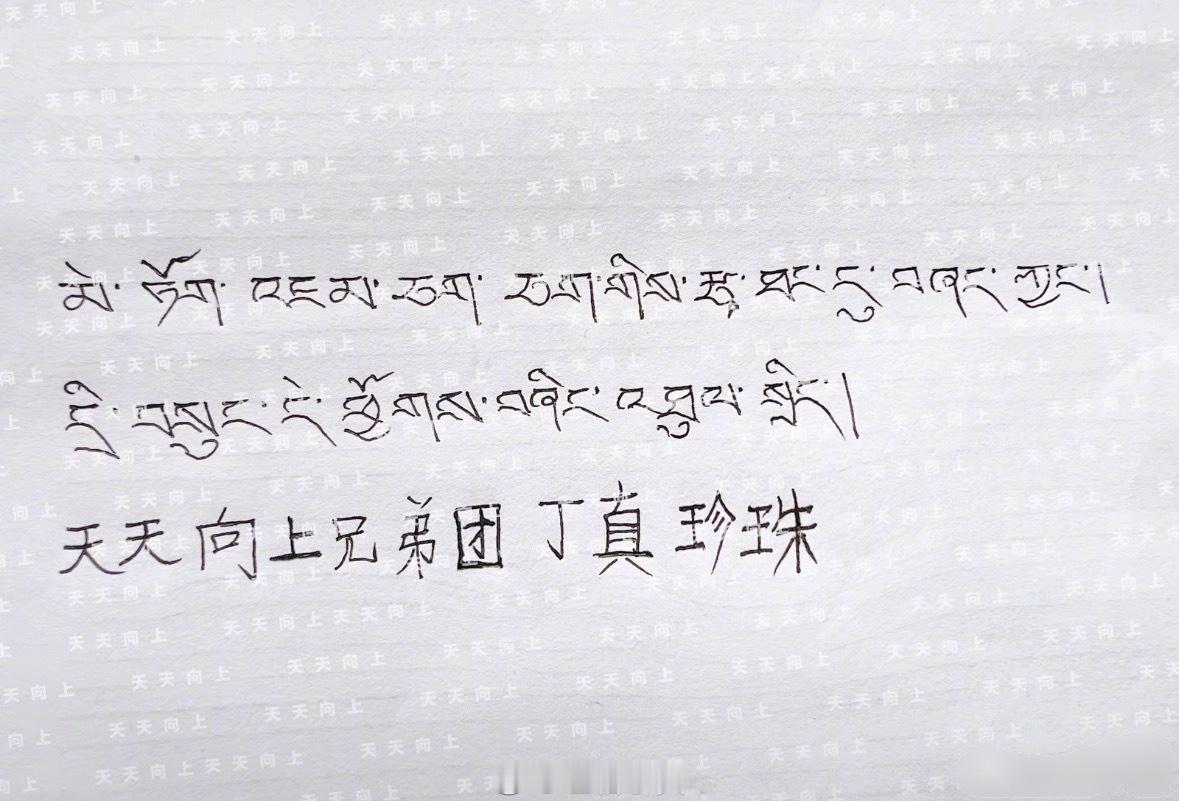 མེ་ཏོག་འཇམ་ཅག་ཅག་གིས་རྩྭ་ཐང་དུ་བཞད་ཀྱང་།
དྲི་བསུང་དེ་ཕྱོགས་བཞིར་འཐུལ་
天天向上兄弟团 丁真珍珠